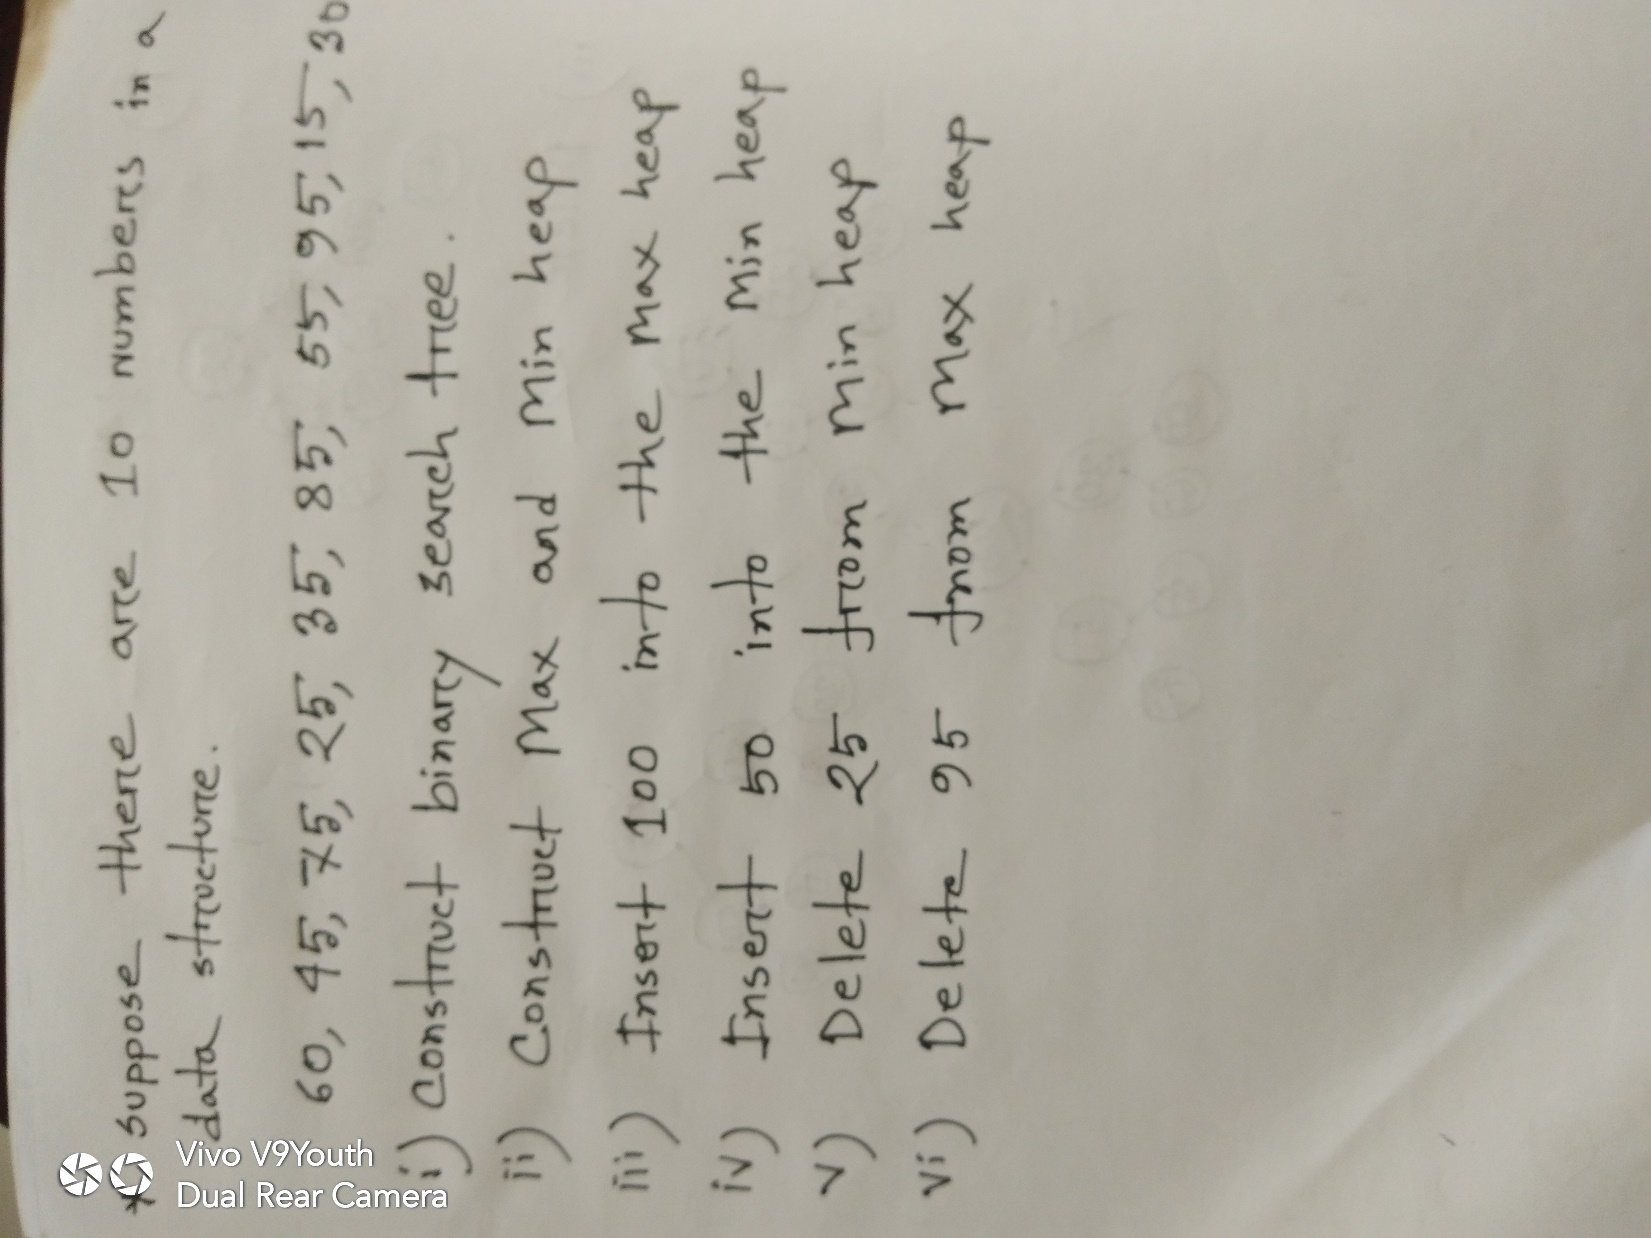 * Suppose there are 10 numbers in a
data structure.
60, 45, 75, 25, 35, 85, 55, 95, 15, 30
i) Construct binary search tree.
ii) Construct Max and Min heap
iii) Insert 100 into the Max heap
iv) Insert 50 into the Min heap
v) Delete 25 from Min heap
vi) Delete 95 from Max heap
Vivo V9Youth
Dual Rear Camera